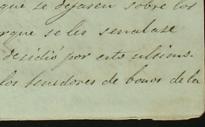 que se dejasen sobre los
rque se les senalase
decidió por esto ultimo.
los tenedores de bonos de la